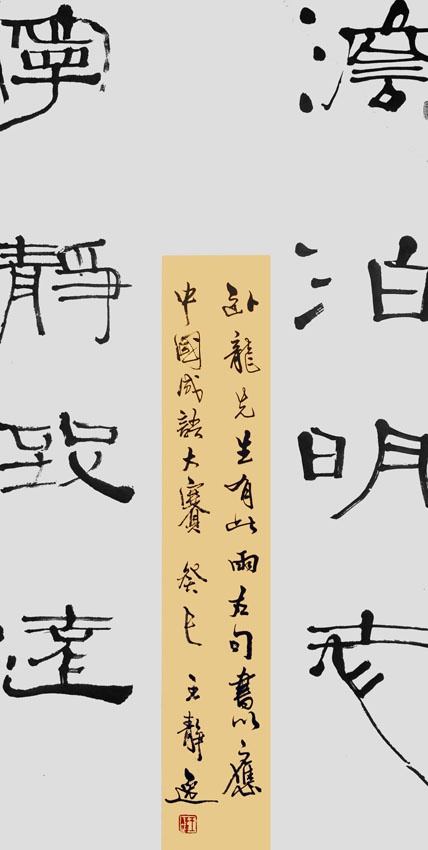 澹泊明志
寧靜致遠
卧龍先生有此兩古句書以應
中國成語大賽 癸巳 王靜逸